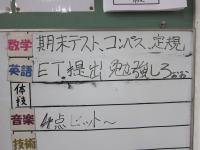 数学 期末テスト、コンパス、定規
英語 ET提出!勉強しろぉぉ
体技
音楽 4点セット〜
技術